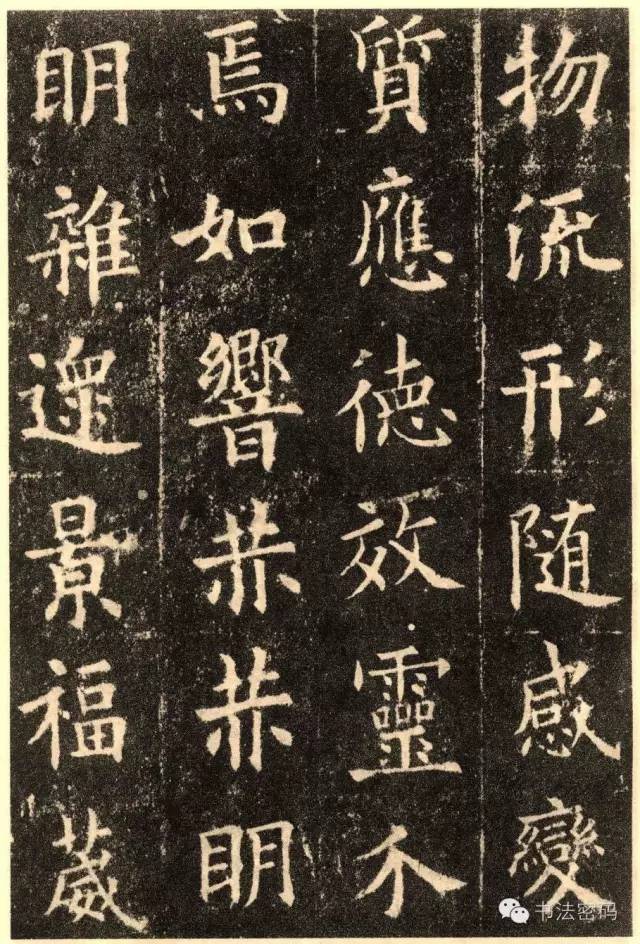 物流形随感變
質應德效靈不
焉如響赫赫明
明雜遝景福葳
书法密码